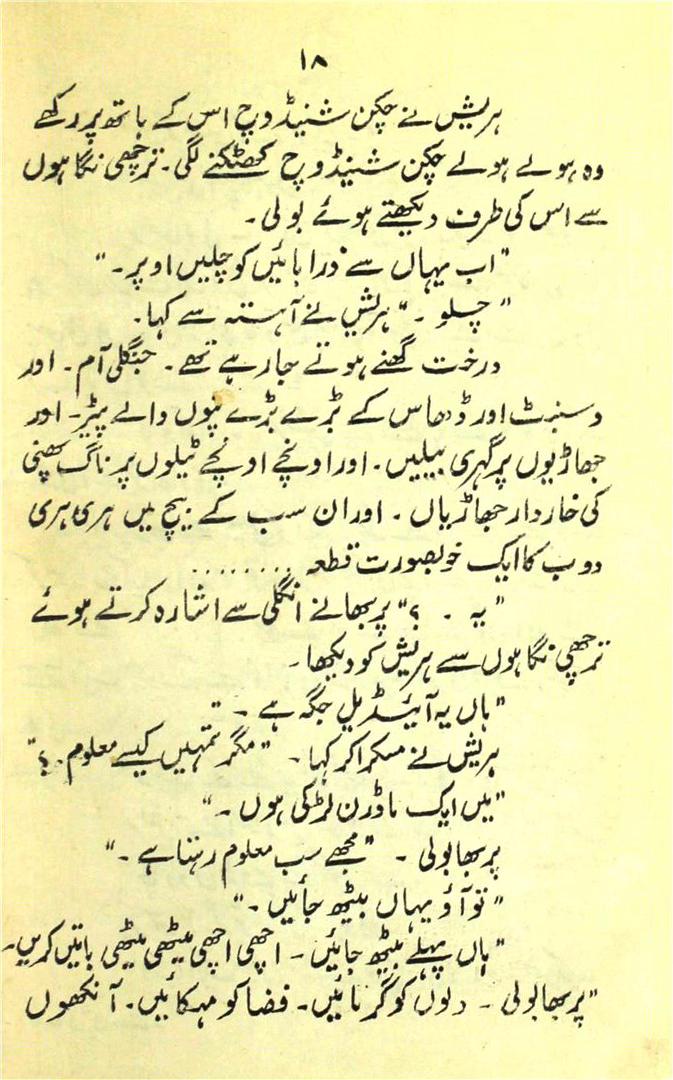 ۱۸
ہریش نے چکن شنیڈوچ اس کے ہاتھ پر رکھے
وہ ہولے ہولے چکن شنیڈوچ کھٹکنے لگی۔ ترچھی نگاہوں
سے اس کی طرف دیکھتے ہوئے بولی۔
"اب یہاں سے ذرا بائیں کو چلیں اوپر۔"
"چلو۔" ہریش نے آہستہ سے کہا۔
درخت گھنے ہوتے جا رہے تھے۔ جنگلی آم۔ اور
دسنبٹ اور ڈدھاس کے بڑے بڑے پتوں والے پیڑ۔ اور
جھاڑیوں پر گہری بیلیں۔ اور اونچے اونچے ٹیلوں پر ناگ پھنی
کی خاردار جھاڑیاں۔ اور ان سب کے بیچ میں ہری ہری
دوب کا ایک خوبصورت قطعہ ........
"یہ ۔ ؟" پربھا نے انگلی سے اشارہ کرتے ہوئے
ترچھی نگاہوں سے ہریش کو دیکھا۔
"ہاں یہ آئیڈیل جگہ ہے۔"
ہریش نے مسکرا کر کہا۔ "مگر تمہیں کیسے معلوم۔؟"
"میں ایک ماڈرن لڑکی ہوں۔"
پربھا بولی۔ "مجھے سب معلوم رہتا ہے۔"
"تو آؤ یہاں بیٹھ جائیں۔"
"ہاں پہلے بیٹھ جائیں۔ اچھی اچھی میٹھی میٹھی باتیں کریں۔
"پربھا بولی۔ دلوں کو گرمائیں۔ فضا کو مہکائیں۔ آنکھوں